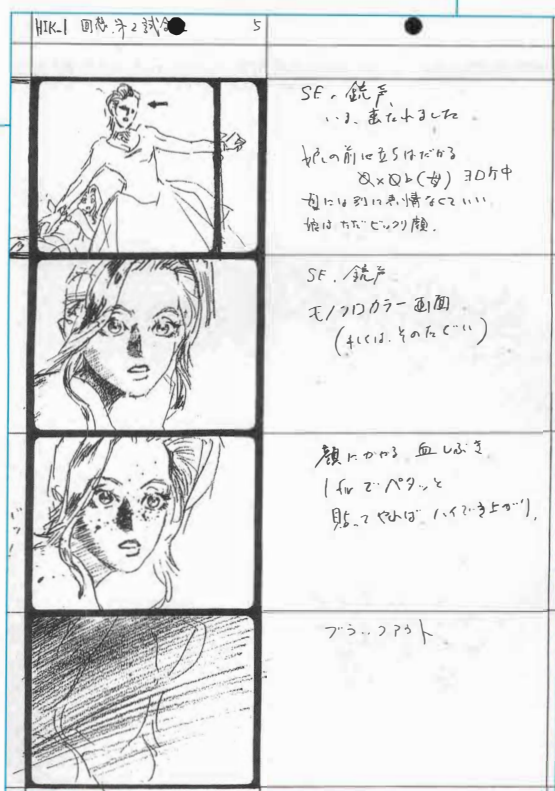 HIK_1 回想 第2試合 5
SE. 銃声
いま、童たれました
娘の前に立ちはだかる
(母) ヨロケ中
母には別に表情なくていい
娘はただビックリ顔.
SE. 銃声
モノクロカラー画面
(もしくは、そのたぐい)
顔にかかる 血しぶき
でペタッと
貼ってやれば ハイでき上がり.
ブラックアウト